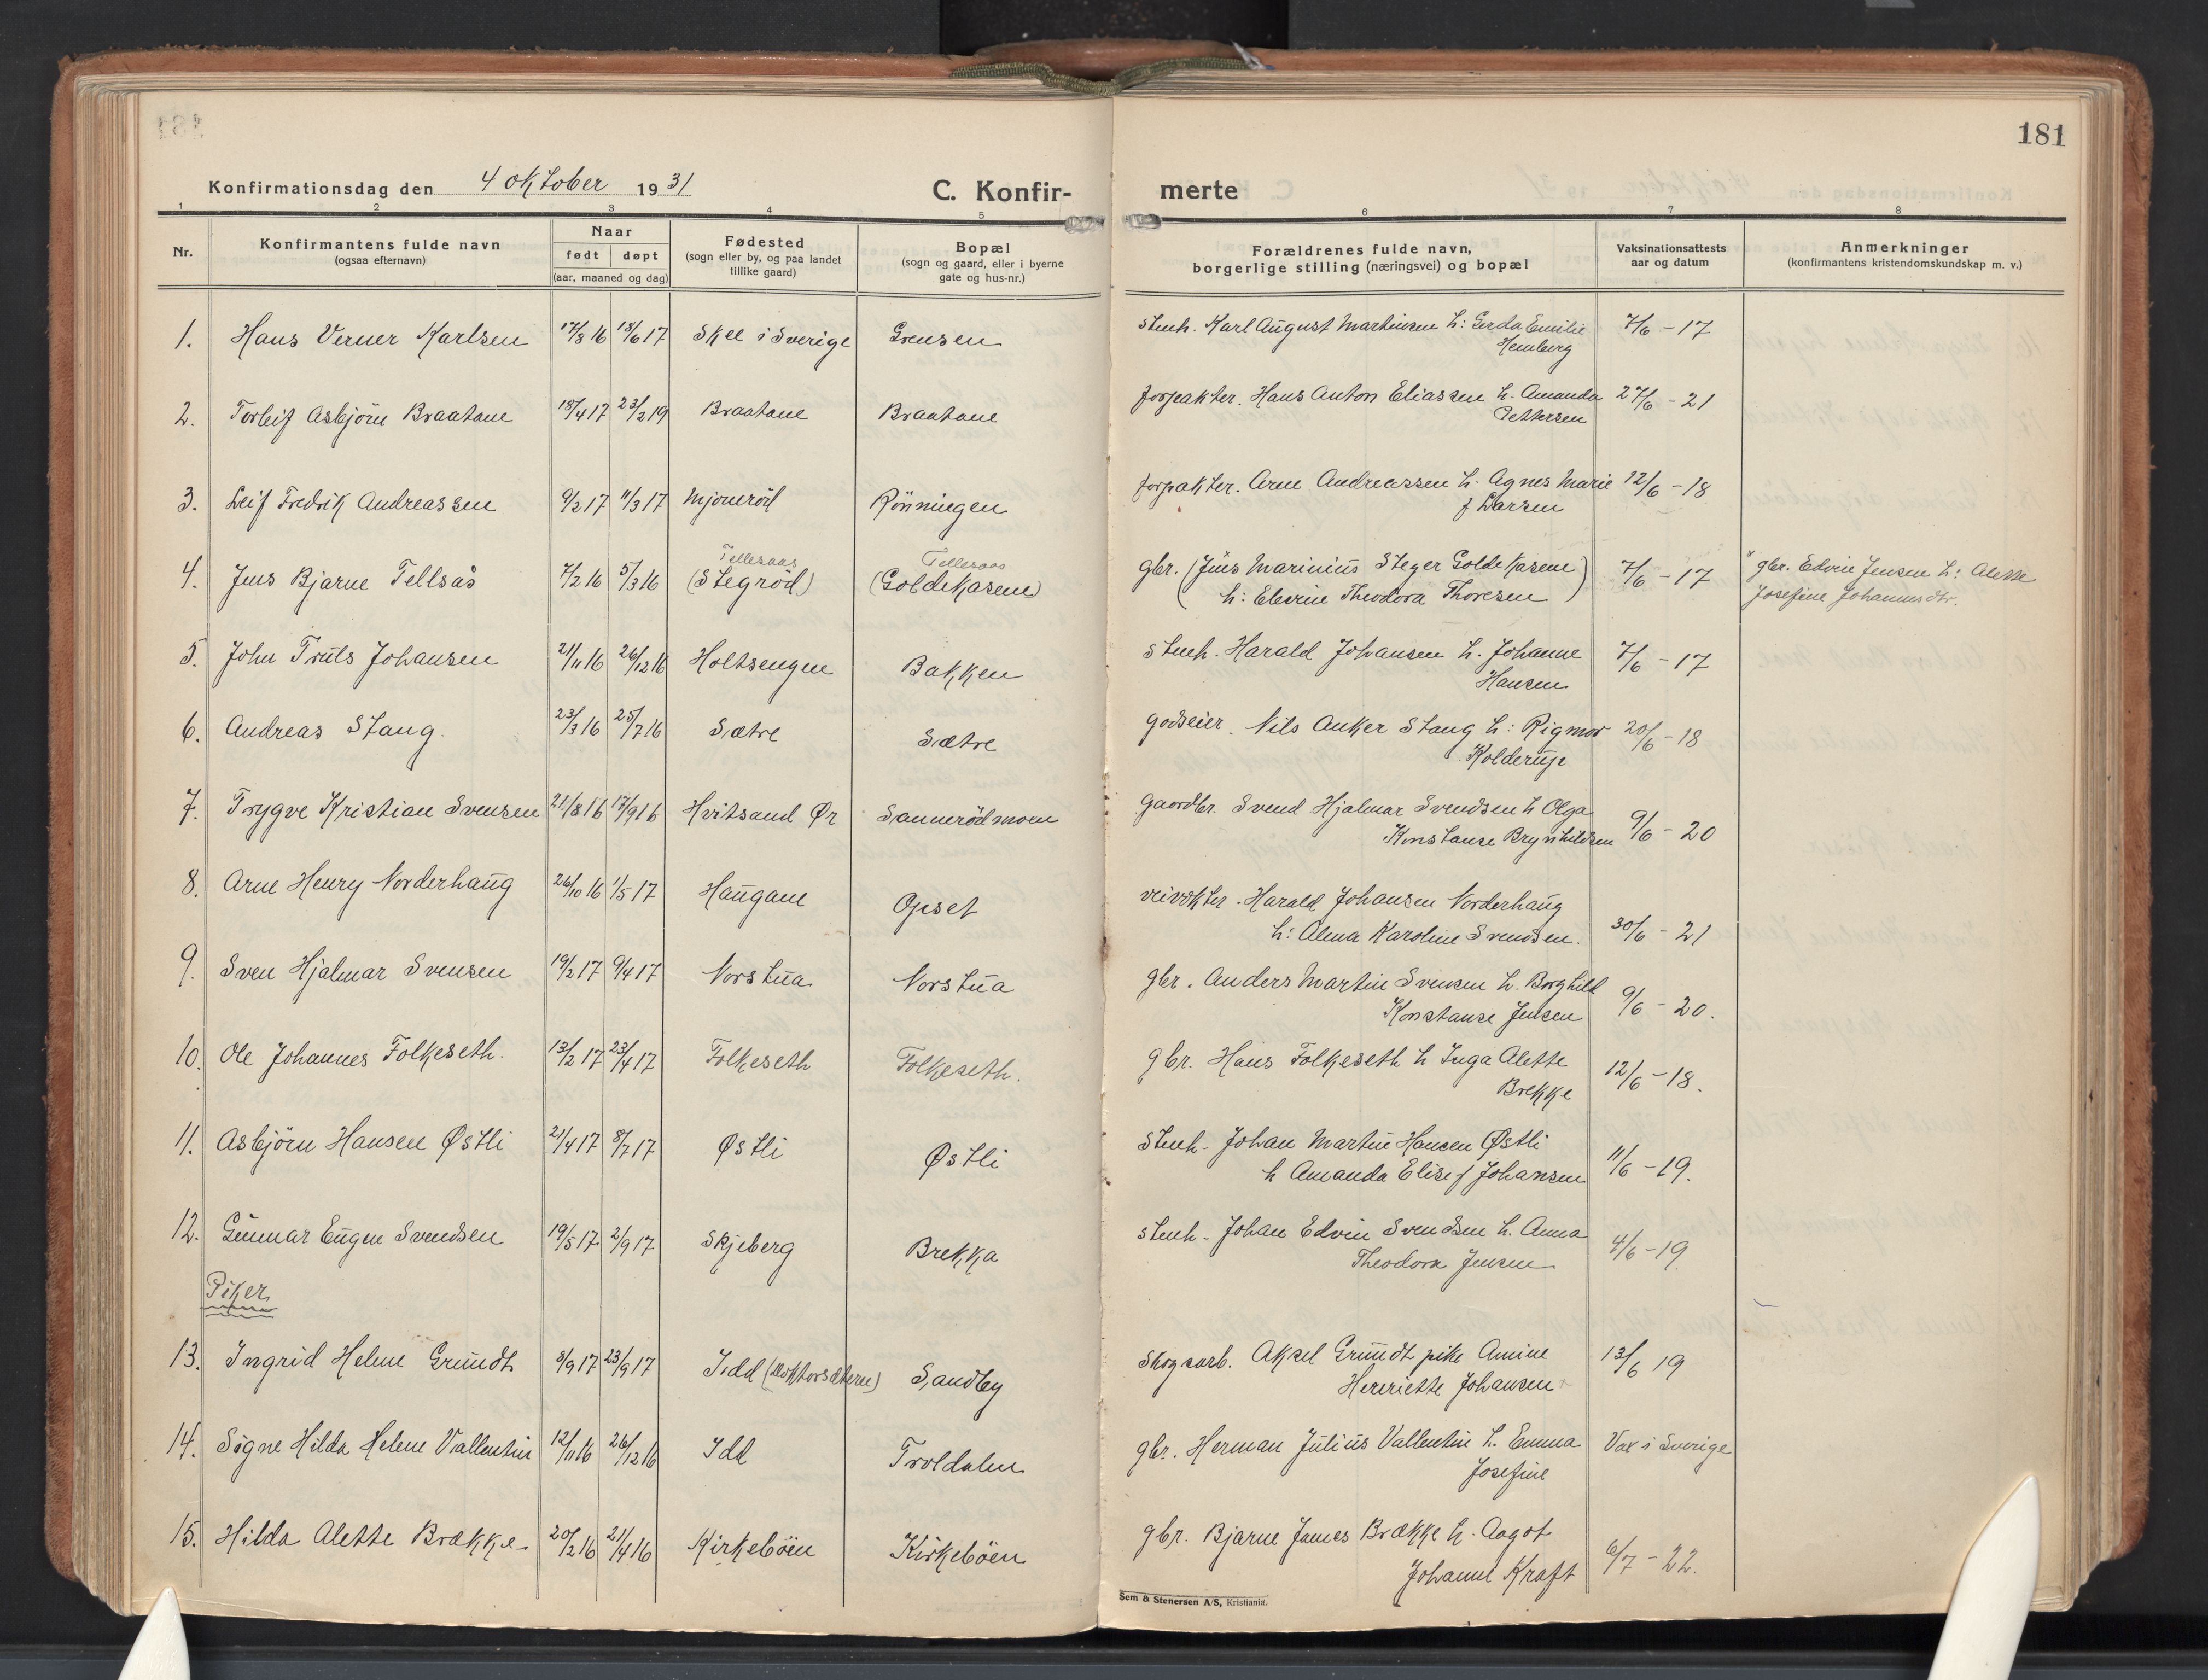 181
Konfirmationsdag den 4 oktober 1931
C. Konfir-
merte
1 2 3 4 5 6 7 8
Nr.
Konfirmantens fulde navn
(ogsaa efternavn)
Naar
født døpt
(aar, maaned og dag)
Fødested
(sogn eller by, og paa landet
tillike gaard)
Bopæl
(sogn og gaard, eller i byerne
gate og hus-nr.)
Forældrenes fulde navn,
borgerlige stilling (næringsvei) og bopæl
Vaksinationsattests
aar og datum
Anmerkninger
(konfirmantens kristendomskundskap m. v.)
1. Hans Verner Karlsen 17/8 16 18/6 17 Skee i Sverige Grensen stenh. Karl August Martinsen h: Gerda Emilie 7/6 - 17
Hemberg
2. Torleif Asbjörn Braatane 18/4 17 23/2 19 Braatane Braatane forpakter. Hans Anton Eliassen h. Amanda 27/6 - 21
Pettersen
3. Leif Fredrik Andreassen 9/2 17 11/3 17 Mjöneröd Rönningen forpakter. Arne Andreassen h. Agnes Marie 12/6 - 18
f Larsen
Tellesaas Tellesaas
4. Jens Bjarne Tellsås 7/2 16 5/3 16 (Stegröd) (Goldekasene) gbr. (Jens Marinius Steger Goldekasene) 7/6 - 17 gbr. Edvin Jensen h: Alette
h: Elevine Theodora Thoresen Josefine Johannesdtr.
5. John Truls Johansen 21/11 16 26/12 16 Holtsengen Bakken stenh. Harald Johansen h. Johanne 7/6 - 17
Hansen
6. Andreas Stang. 23/3 16 25/7 16 Sætre Sætre godseier. Nils Anker Stang h: Rigmor 20/6 - 18
Kolderup
7. Trygve Kristian Svensen 21/8 16 17/9 16 Hvitsand Ør Sannerödmoen gaardbr. Svend Hjalmar Svendsen h Olga 9/6 - 20
Konstanse Brynhildsen
8. Arne Henry Norderhaug 26/10 16 1/5 17 Haugane Opset veivokter. Harald Johansen Norderhaug
h: Alma Karoline Svendsen. 30/6 - 21
9. Sven Hjalmar Svensen 19/2 17 9/4 17 Norstua Norstua gbr. Anders Martin Svensen h. Borghild
Konstanse Jensen 9/6 - 20.
10. Ole Johannes Folkeseth. 13/2 17 23/4 17 Folkeseth Folkeseth. gbr. Hans Folkeseth h Inga Alette 12/6 - 18.
Brekke
11. Asbjörn Hansen Østli 21/4 17 8/7 17 Østli Østli stenh - Johan Martin Hansen Østli
h Amanda Elise f Johansen 11/6 - 19.
12. Gunnar Eugen Svendsen 19/5 17 2/9 17 Skjeberg Brekka stenh - Johan Edvin Svendsen h. Anna 4/6 - 19
Theodora Jensen
Piker
13. Ingrid Helene Grundt 8/9 17 23/9 17 Idd (Doktorsæteren) Sandby skogsarb. Aksel Grundt pike Amine 13/6 19
Henriette Johansen
14. Signe Hilda Helene Vallentin 12/11 16 26/12 16 Idd Troldalen gbr. Herman Julius Vallentin h. Emma Vax i Sverige
Josefine
15. Hilda Alette Brække 20/2 16 21/4 16 Kirkeböen Kirkeböen gbr. Bjarne James Brække h. Aagot
Johanne Kraft 6/7 - 22.
Sem & Stenersen A/S, Kristiania.